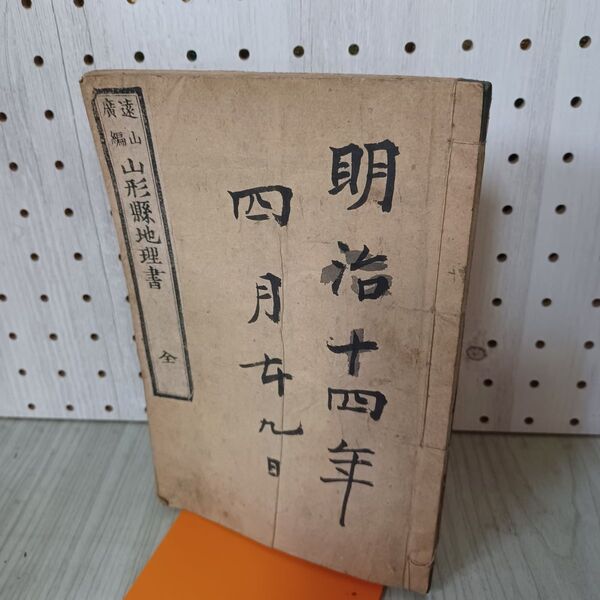 明治十四年
四月廿九日
遠山
廣編
山形縣地理書
全